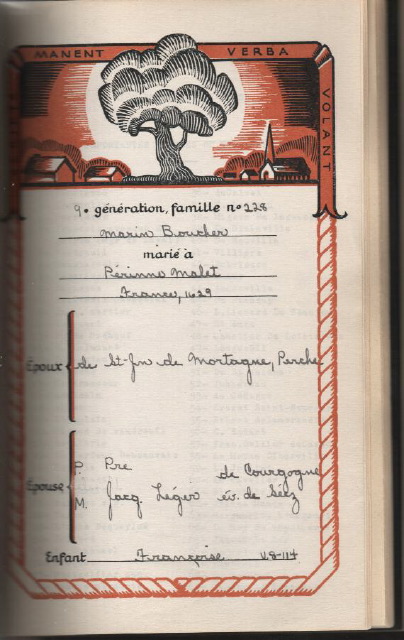 MANENT VERBA VOLANT
9e génération, famille no 238
Marin Boucher
marié à
Périnne Malet
France, 1629
Époux de St-Jn de Mortagne, Perche
P. Pre de Courgogne
Épouse
M. Jacq. Léger év. de Séez
Enfant Françoise V.8-114